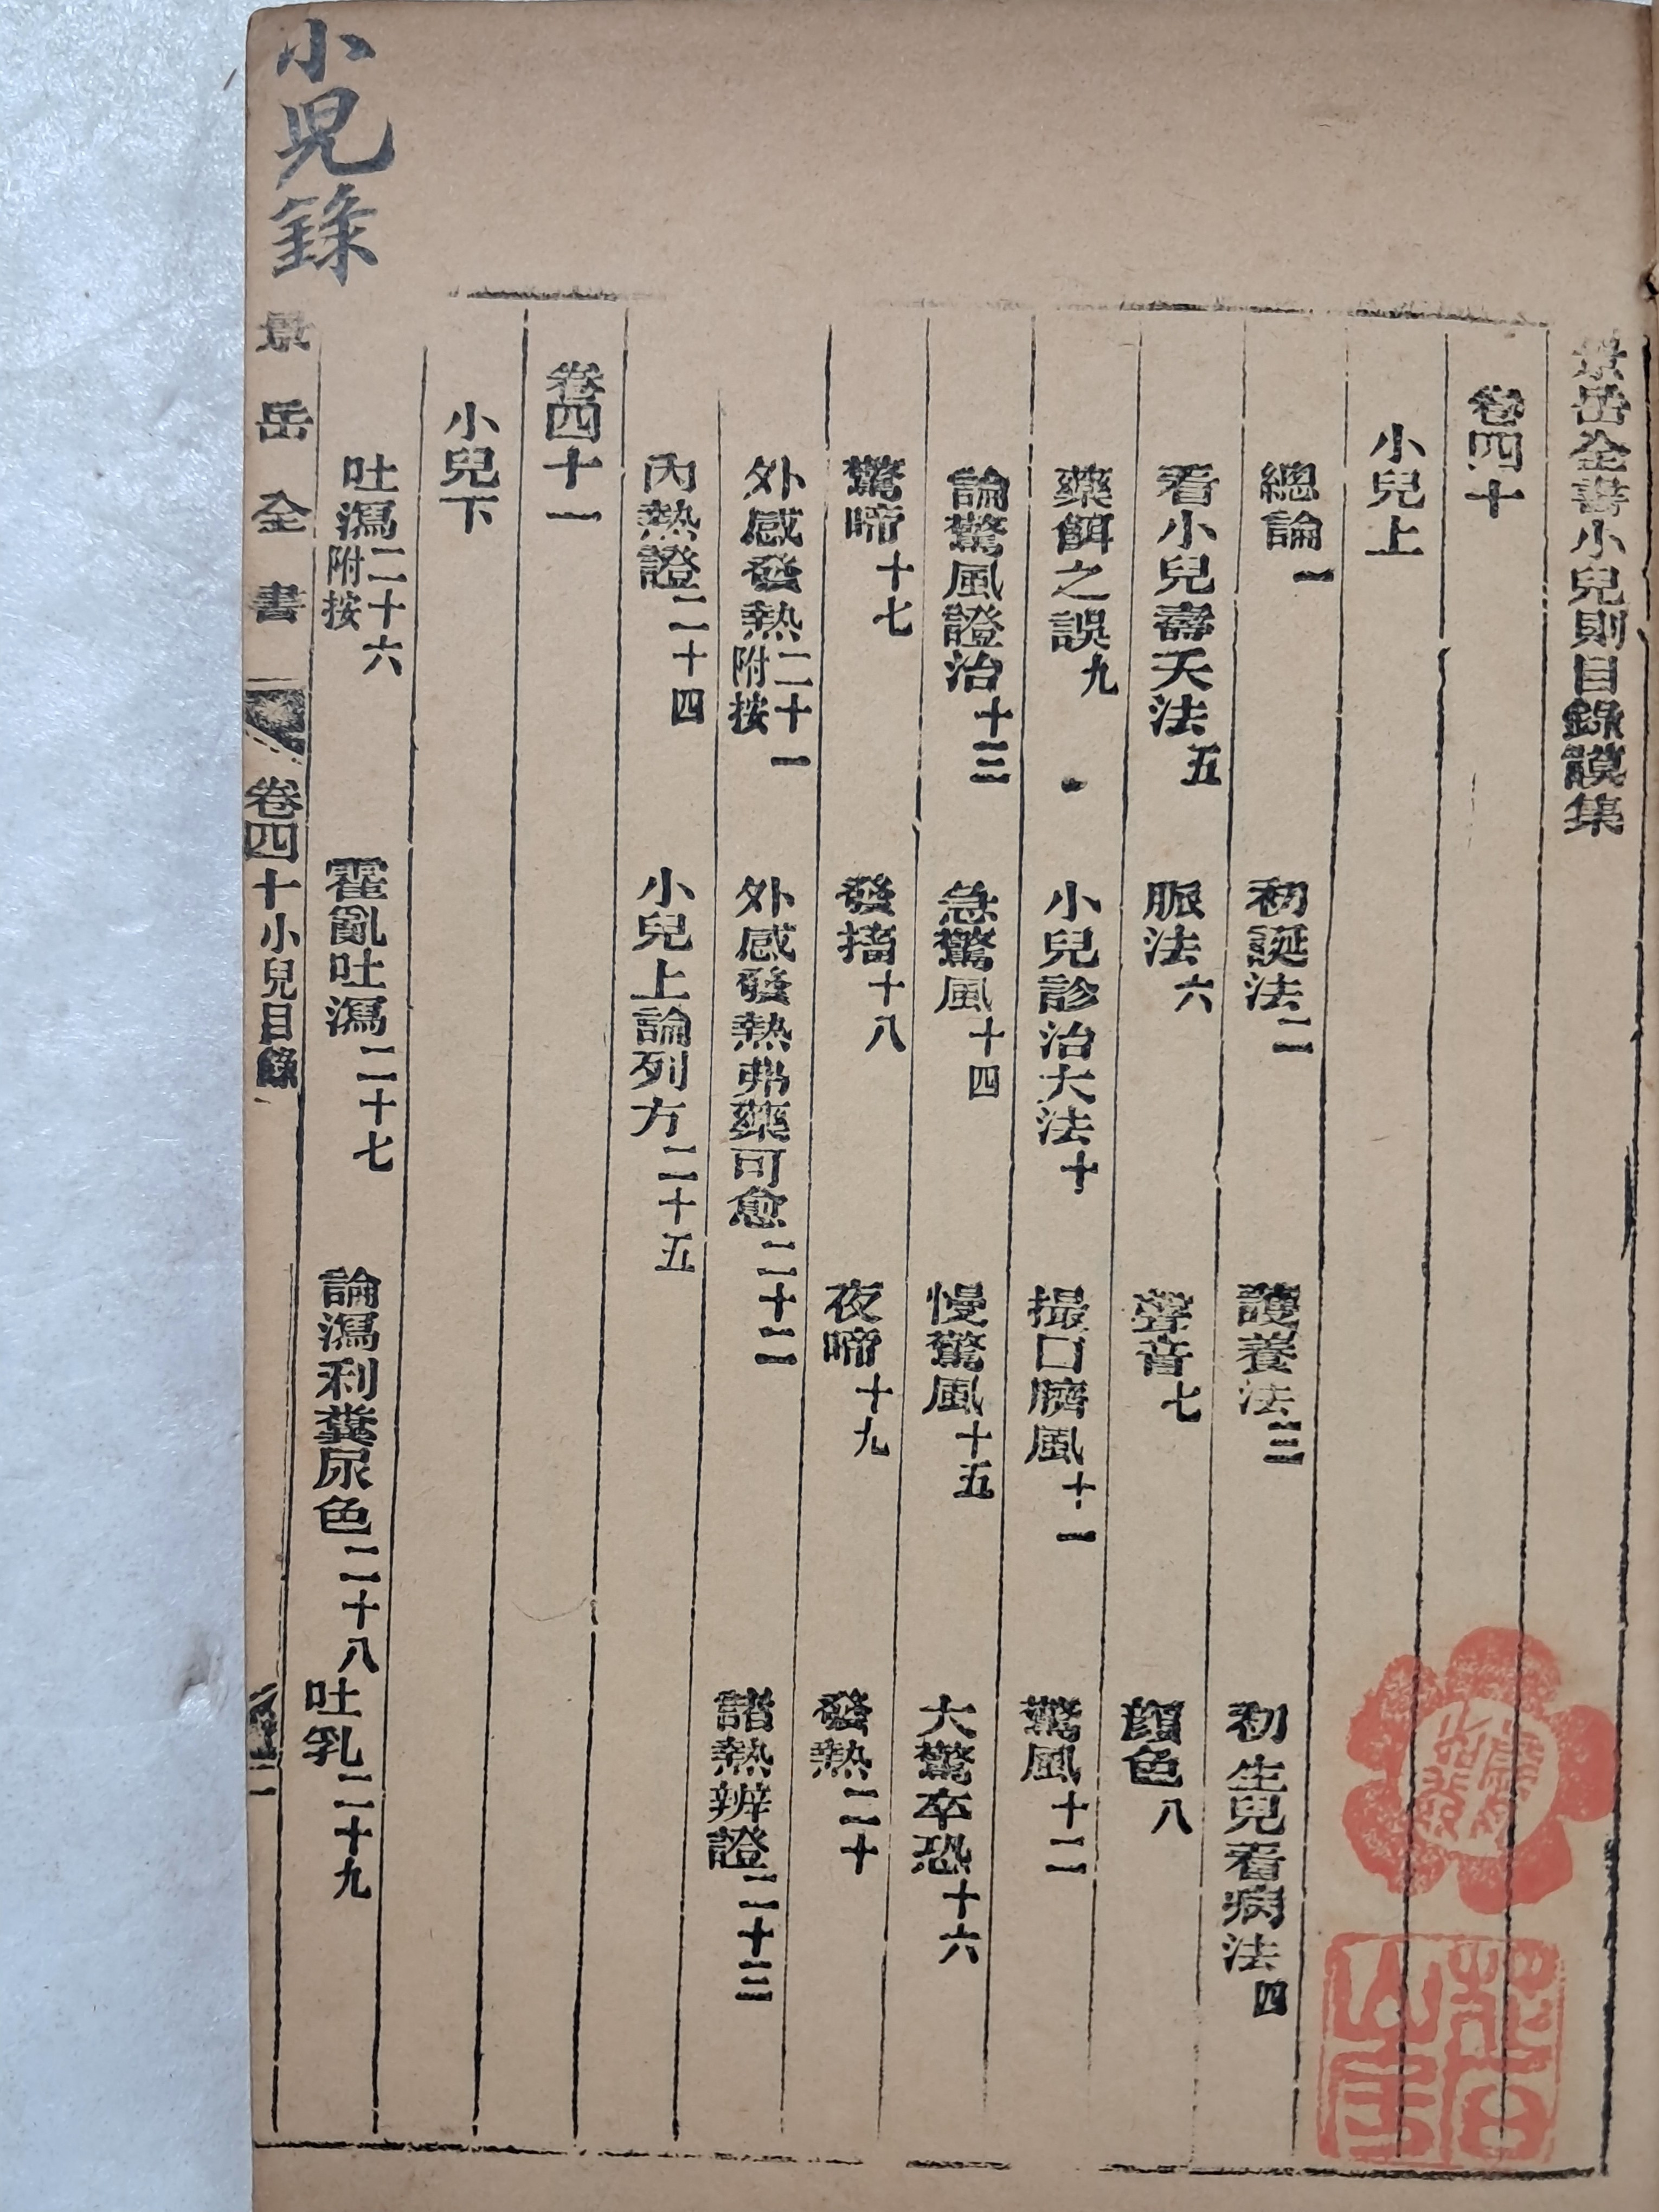 景岳全書小兒則目錄謨集
卷四十
小兒上
總論一 初誕法二 護養法三 初生兒看病法四
看小兒壽夭法五 脈法六 聲音七 顏色八
藥餌之誤九 小兒診治大法十 撮口臍風十一 驚風十二
論驚風證治十三 急驚風十四 慢驚風十五 大驚卒恐十六
驚啼十七 發搐十八 夜啼十九 發熱二十
外感發熱二十一附按 外感發熱弗藥可愈二十二 諸熱辨證二十三
內熱證二十四 小兒上論列方二十五
卷四十一
小兒下
吐瀉二十六附按 霍亂吐瀉二十七 論瀉利糞尿色二十八 吐乳二十九
景岳全書 卷四十小兒目錄
小兒錄